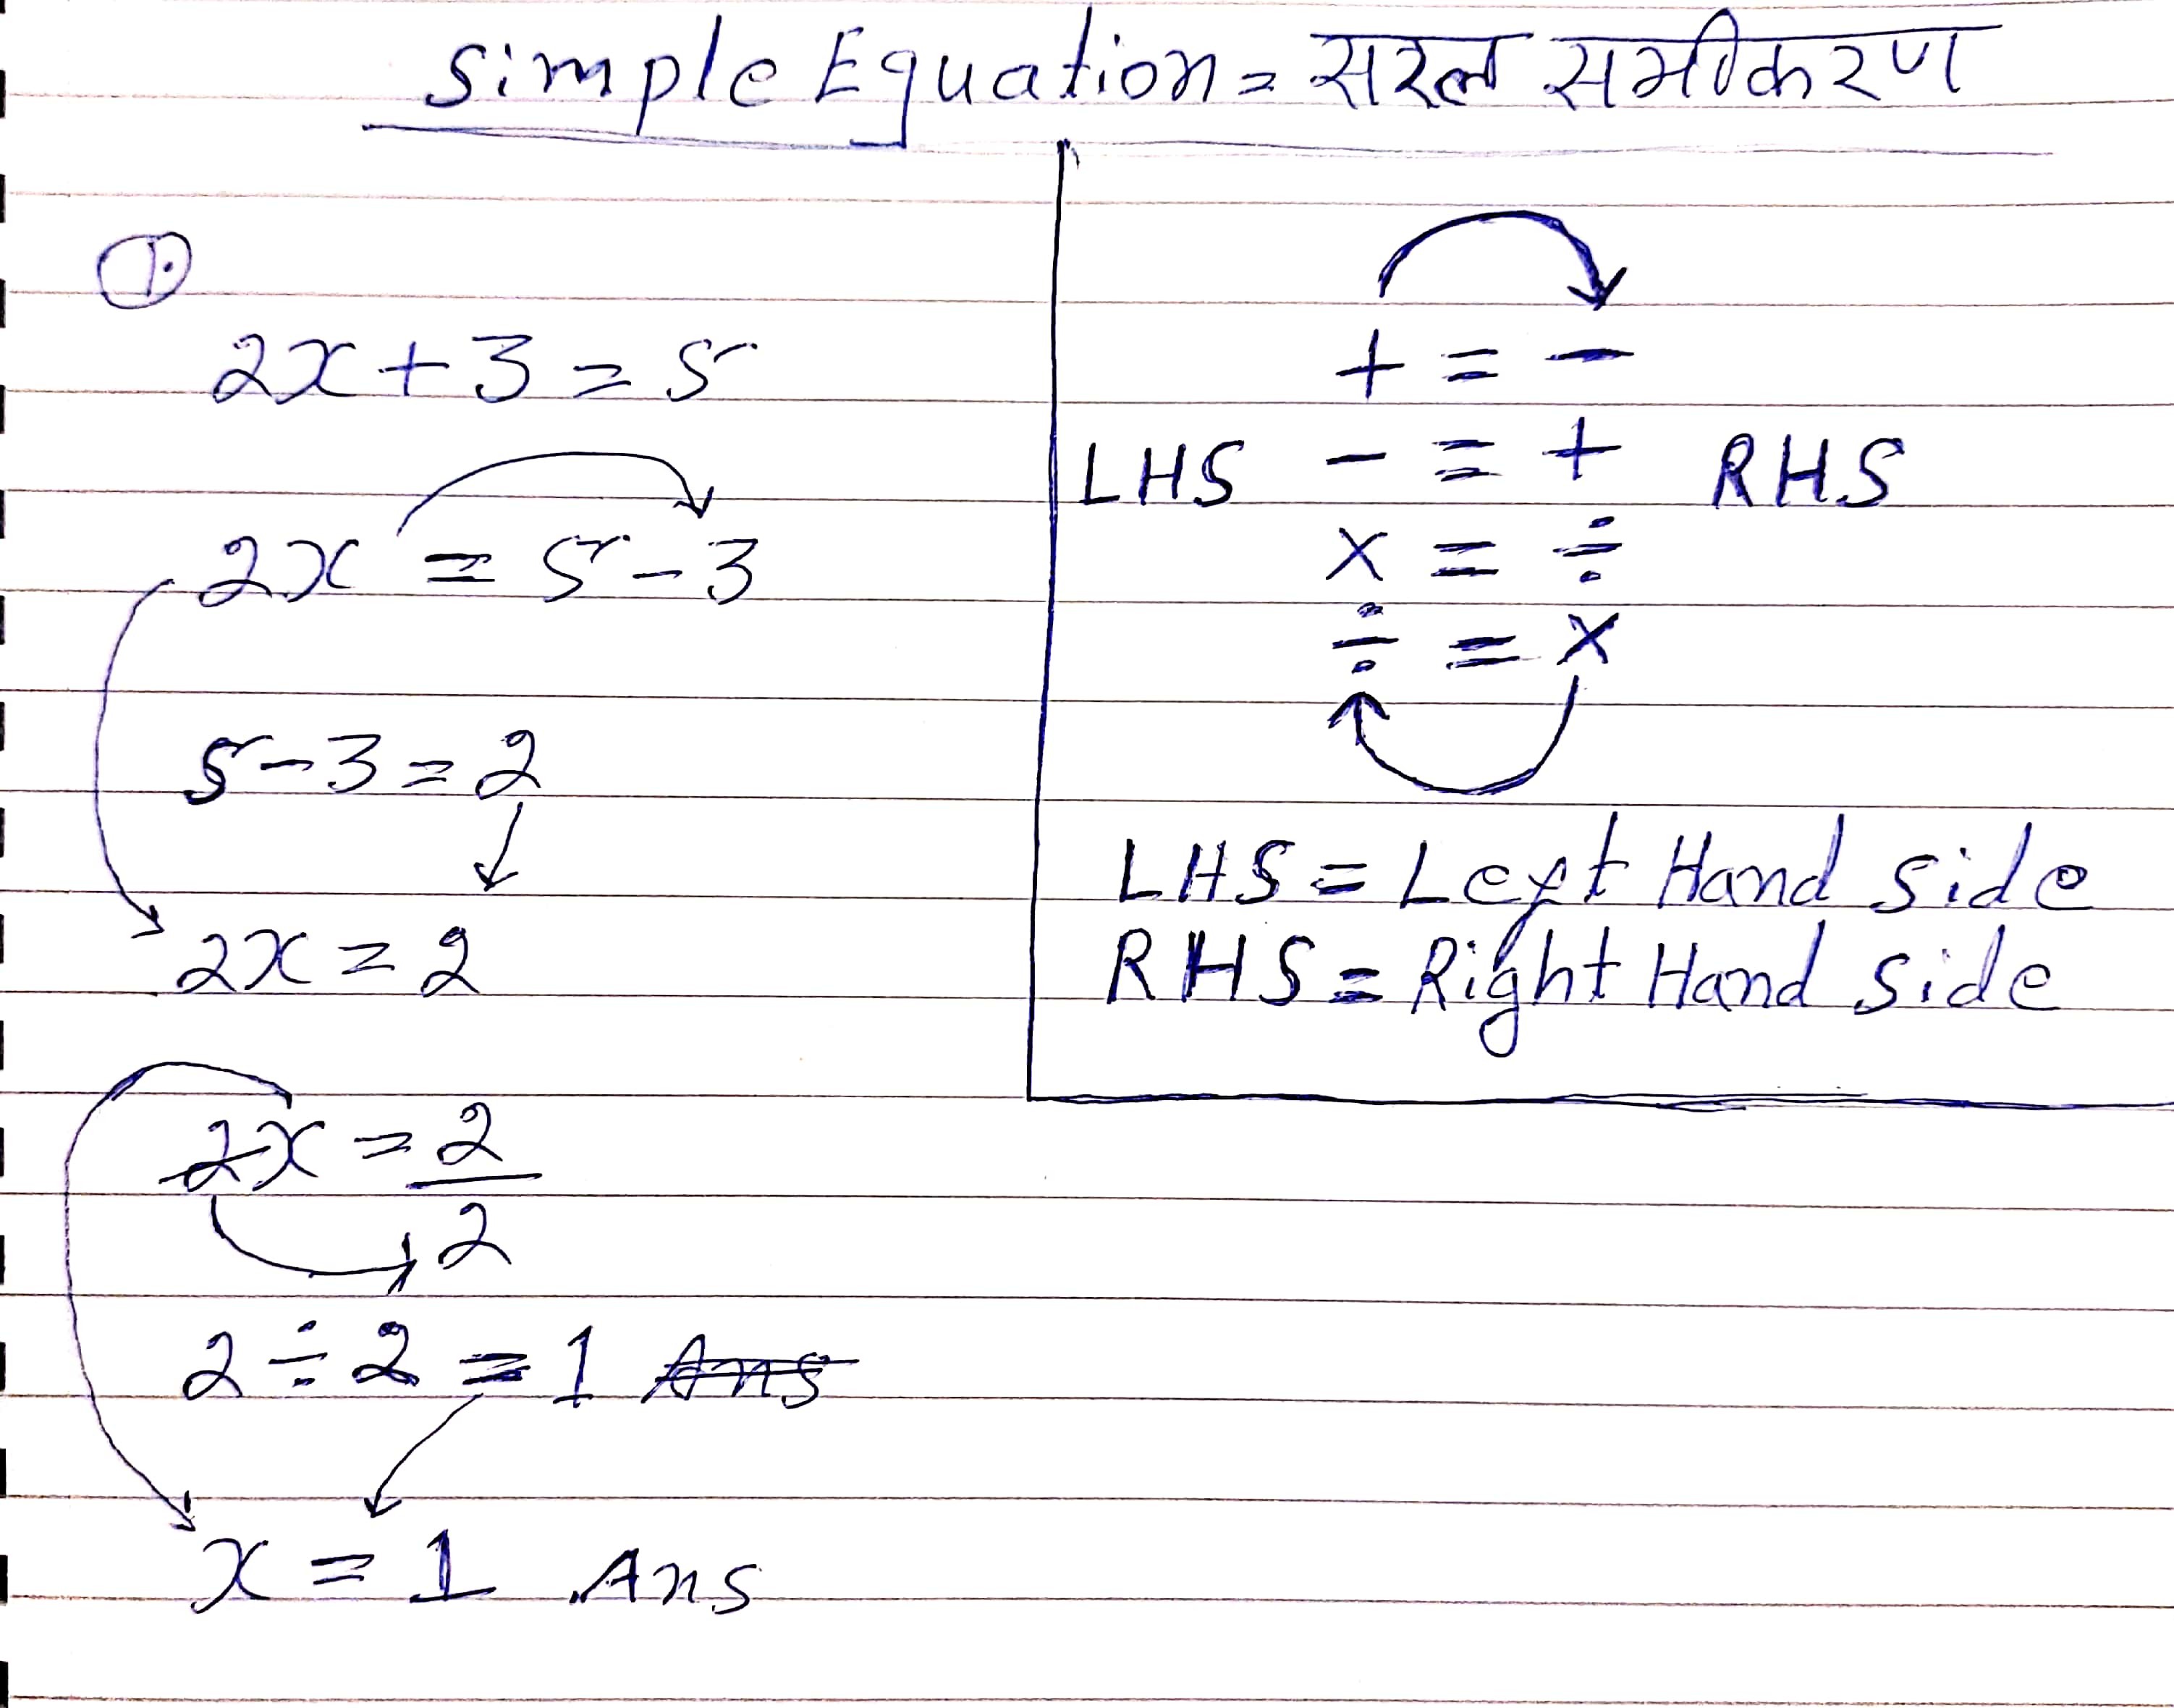 Simple Equation = सरल समीकरण
1.
2x + 3 = 5
2x = 5 - 3
5 - 3 = 2
2x = 2
2x = 2
2
2 ÷ 2 = 1 Ans
x = 1 Ans
+ = -
LHS - = + RHS
x = ÷
÷ = x
LHS = Left Hand side
RHS = Right Hand side